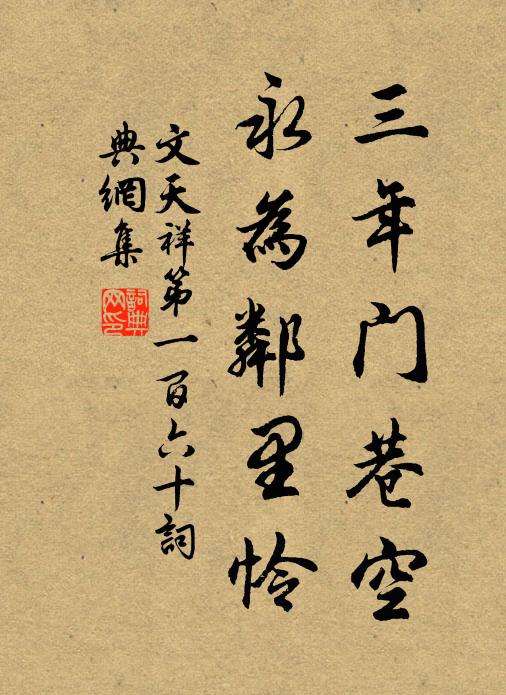 三年門巷空
永為鄰里怜
文天祥第一百六十詞
典網集
詞典
网印